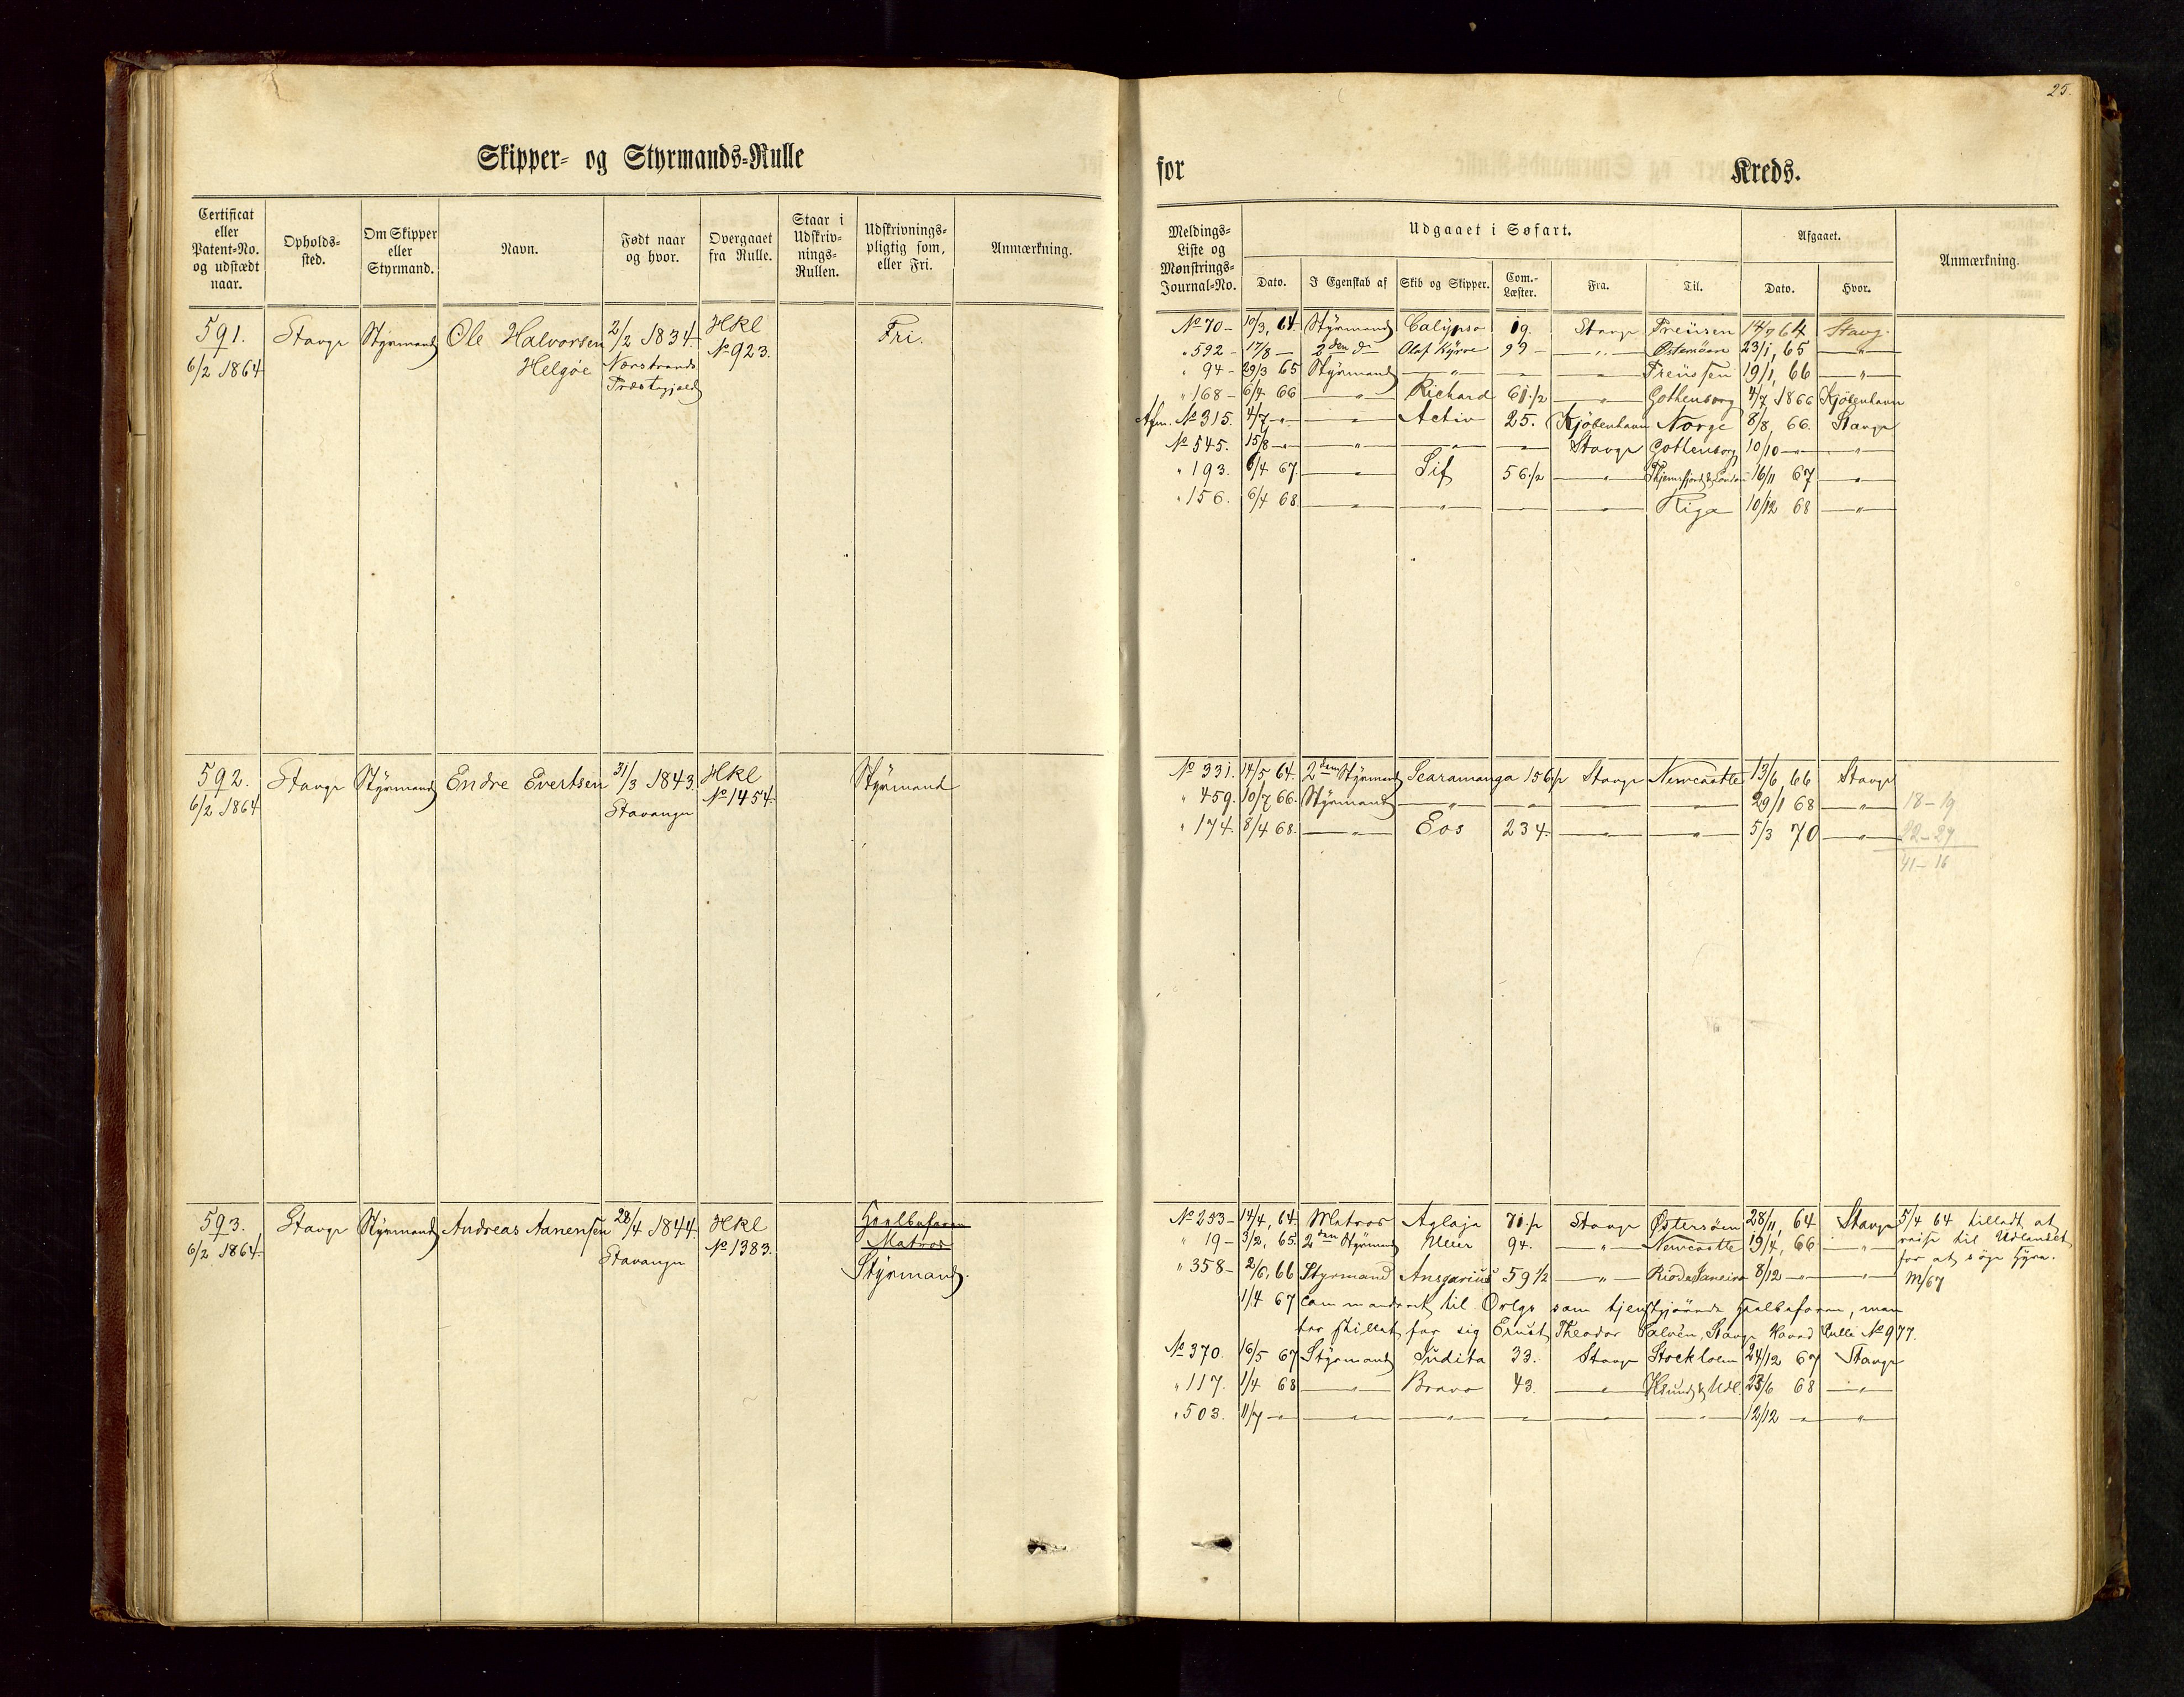 25.
Skipper- og Styrmands-Rulle
for Kreds.
Certificat eller Patent-No. og udstædt naar.
Opholds-sted.
Om Skipper eller Styrmand.
Navn.
Født naar og hvor.
Overgaaet fra Rulle.
Staar i Udskriv-nings-Rullen.
Udskrivnings-pligtig som, eller Fri.
Anmærkning.
Meldings-Liste og Mønstrings-Journal-No.
Udgaaet i Søfart.
Afgaaet.
Anmærkning.
Dato. I Egenskab af Skib og Skipper. Com.-Læster. Fra. Til. Dato. Hvor.
591. Stavgr Styrmand Ole Halvorsen 2/2 1834 Hkl Fri.
6/2 1864 Helgøe Nærstrands No 923.
Præstegjæld
No 70 - 10/3, 64 Styrmand Calypso 19. Stavgr Preüsen 14/7 64 Stavg.
" 592 - 17/8 — 2den do Olaf Kyrre 99 — " — Østersöen 23/1, 65 — " —
" 94 - 29/3 65 Styrmand — " — — — " — Preüssen 19/1, 66 — " —
" 168 - 6/4 66 — " — Richard 61 1/2 — " — Gothenborg 4/7 1866 Kjöbenhavn
Afm. No 315. 4/7 — " — — " — Activ 25. Kjöbenhavn Norge 8/8, 66. Stavgr
No 545. 15/8 — " — — " — — " — — " — Stavgr Gothenborg 10/10 — " — — " —
" 193. 6/4 67. — " — Sif 56 1/2 — " — 16/11 67 — " —
" 156. 6/4 68 — " — — " — — — " — Riga 10/12 68 — " —
592. Stavgr Styrmand Endre Evertsen 31/3 1843. Hkl Styrmand
6/2 1864 Stavanger No 1454.
No 331. 14/5 64. 2den Styrmand Scaramanga 156 1/2 Stavgr Newcastle 13/6 66 Stavgr
" 459. 10/7 66. Styrmand — " — — " — — " — — " — 29/1 68 — " — 18 - 19
" 174. 8/4 68. — " — Eos 234. — " — — " — 5/3 70 — " — 22 - 27
41 - 16
593. Stavgr Styrmand Andreas Aanensen 28/4 1844. Hkl Hvalbefaren
6/2 1864. Stavanger No 1383. Matros
Styrmand.
No 253 - 14/4, 64. Matros Aglaja 71 1/2 Stavgr Østersöen 28/11, 64 Stavgr 5/4 64 tilladt at
" 19 - 3/2, 65. 2den Styrmand 94. — " — Newcastle 19/4, 66 — " — reise til Udlandet
for at söge Hyre.
" 358 - 2/6, 66 Styrmand Ansgarius 59 1/2 — " — Rio de Janeiro 8/12 — " — — " — M/67
1/4 67 Commanderet til Orlgs som tjenstgjörende Hvalbefaren, men
har stillet for sig Ernst Theodor Salvén, Stavgr Hoved Rulle No 977.
No 370. 16/5 67 Styrmand Judita 33. Stavgr Stockholm 24/12 67 Stavgr
" 117. 1/4 68 — " — Bravo 43. — " — Hsund & Udl. 23/6 68 — " —
" 503. 11/7 — " — — " — — " — — " — — " — — " — 12/12 — " — — " —